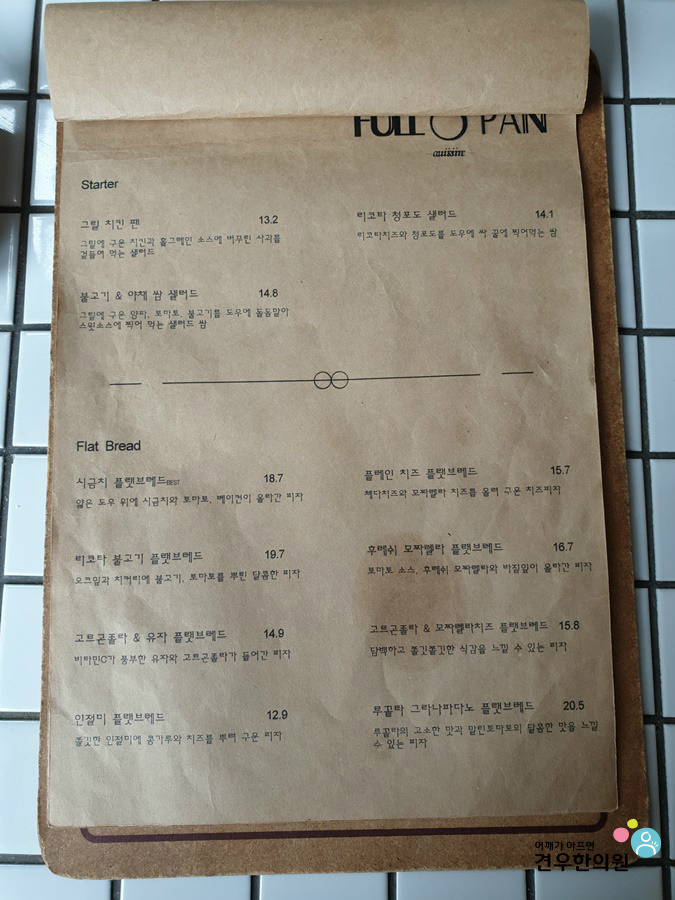 FULL O PAN
cuisine
Starter
그릴 치킨 팬 13.2
그릴에 구운 치킨과 홀그레인 소스에 버무린 사과를
곁들여 먹는 샐러드
리코타 청포도 샐러드 14.1
리코타치즈와 청포도를 도우에 싸 꿀에 찍어먹는 쌈
불고기 & 야채 쌈 샐러드 14.8
그릴에 구운 양파, 토마토, 불고기를 도우에 돌돌말아
스윗소스에 찍어 먹는 샐러드 쌈
Flat Bread
시금치 플랫브레드BEST 18.7
얇은 도우 위에 시금치와 토마토, 베이컨이 올라간 피자
플레인 치즈 플랫브레드 15.7
체다치즈와 모짜렐라 치즈를 올려 구운 치즈피자
리코타 불고기 플랫브레드 19.7
오크잎과 치커리에 불고기, 토마토를 뿌린 달콤한 피자
후레쉬 모짜렐라 플랫브레드 16.7
토마토 소스, 후레쉬 모짜렐라와 바질잎이 올라간 피자
고르곤졸라 & 유자 플랫브레드 14.9
비타민C가 풍부한 유자와 고르곤졸라가 들어간 피자
고르곤졸라 & 모짜렐라치즈 플랫브레드 15.8
담백하고 쫄깃쫄깃한 식감을 느낄 수 있는 피자
인절미 플랫브레드 12.9
쫄깃한 인절미에 콩가루와 치즈를 뿌려 구운 피자
루꼴라 그라나파다노 플랫브레드 20.5
루꼴라의 고소한 맛과 말린토마토의 달콤한 맛을 느낄
수 있는 피자
어깨가 아프면
견우한의원